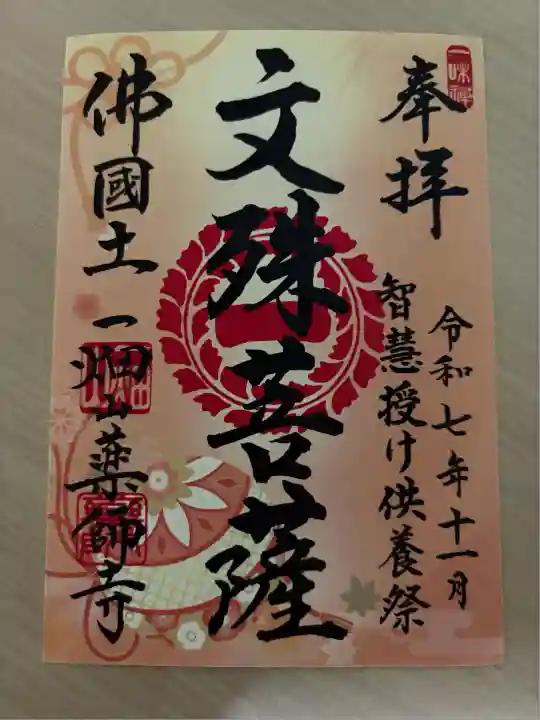 一味禅
奉拝
令和七年十一月
智慧授け供養祭
文殊菩薩
佛國土
一畑山薬師寺